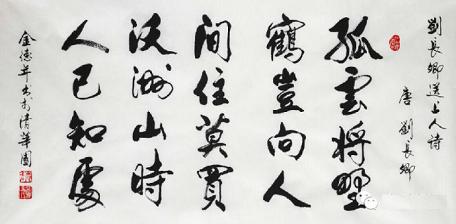 劉長卿送上人诗
唐 劉長卿
孤雲將野
鶴豈向人
間住莫買
沃洲山時
人已知處
金德年书於清華園